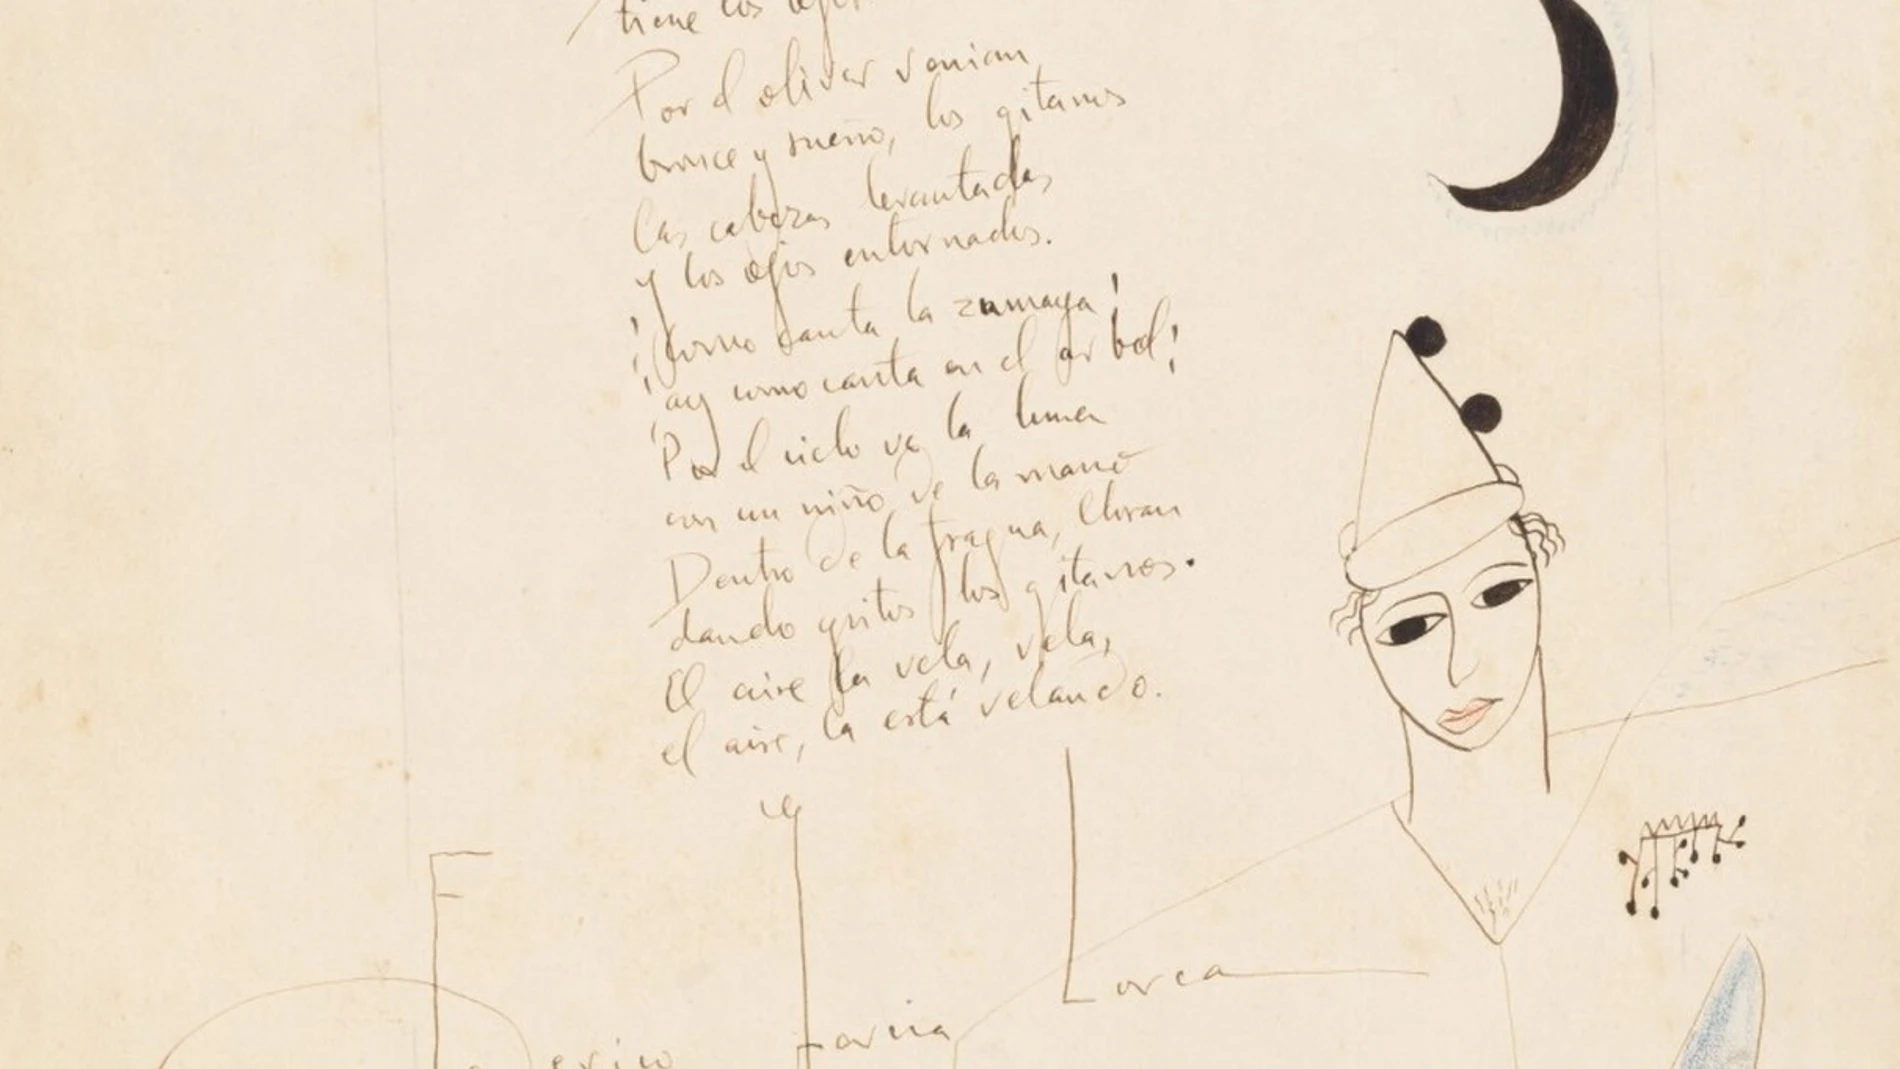 tiene los ojos
Por el olivar venian,
bronce y sueño, los gitanos
las cabezas levantadas
y los ojos entornados.
¡Como canta la zumaya!
¡ay como canta en el arbol!
Por el cielo va la luna
con un niño de la mano
Dentro de la fragua, lloran
dando gritos los gitanos.
El aire la vela, vela,
el aire, la está velando.
Federico
Garcia
Lorca